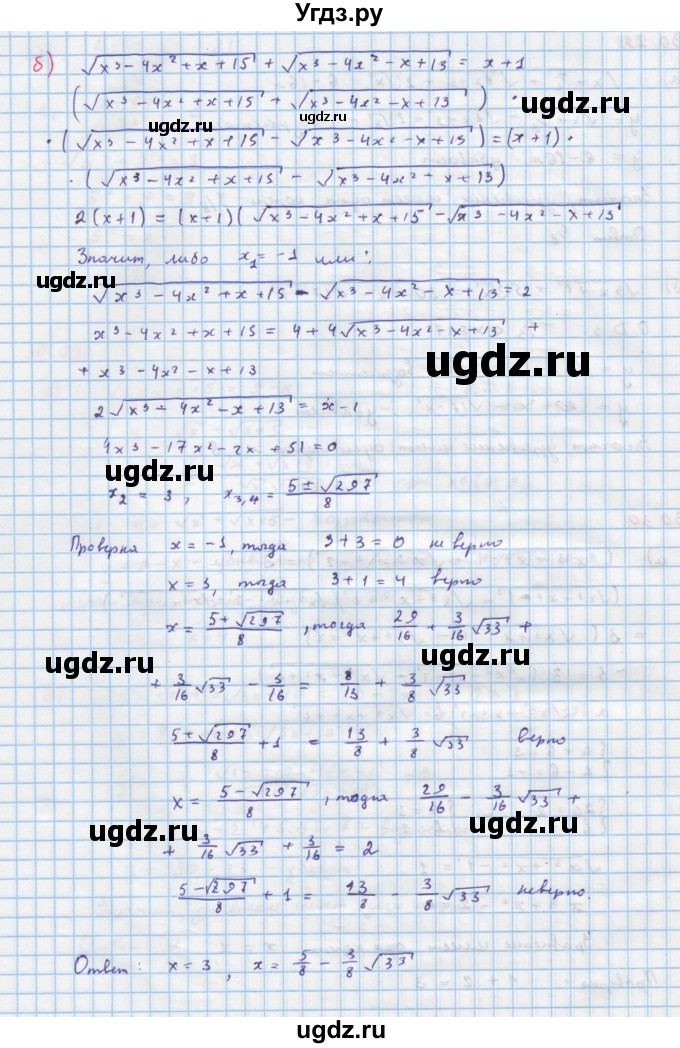 Угдз.ру
б) √(x³ - 4x² + x + 15) + √(x³ - 4x² - x + 13) = x + 1
(√(x³ - 4x² + x + 15) + √(x³ - 4x² - x + 13)) ·
ugdz.ru
ugdz.ru
· (√(x³ - 4x² + x + 15) - √(x³ - 4x² - x + 15)) = (x + 1) ·
· (√(x³ - 4x² + x + 15) - √(x³ - 4x² - x + 13))
2(x + 1) = (x + 1)(√(x³ - 4x² + x + 15) - √(x³ - 4x² - x + 13)
Значит, либо x₁ = -1 или:
ugdz.ru
√(x³ - 4x² + x + 15) - √(x³ - 4x² - x + 13) = 2
x³ - 4x² + x + 15 = 4 + 4√(x³ - 4x² - x + 13) +
ugdz.ru
+ x³ - 4x² - x + 13
2√(x³ - 4x² - x + 13) = x - 1
4x³ - 17x² - 2x + 51 = 0
ugdz.ru
x₂ = 3, x₃,₄ = (5 ± √297)/8
Проверка x = -1, тогда 3 + 3 = 0 неверно
x = 3, тогда 3 + 1 = 4 верно
x = (5 + √297)/8, тогда 29/16 + 3/16 √33 +
ugdz.ru
ugdz.ru
+ 3/16 √33 - 3/16 = 8/13 + 3/8 √33
(5 + √297)/8 + 1 = 13/8 + 3/8 √33 верно
x = (5 - √297)/8, тогда 29/16 - 3/16 √33 +
ugdz.ru
ugdz.ru
+ 3/16 √33 + 3/16 = 2
(5 - √297)/8 + 1 = 13/8 - 3/8 √33 неверно.
Ответ: x = 3, x = 5/8 - 3/8 √33
ugdz.ru
ugdz.ru